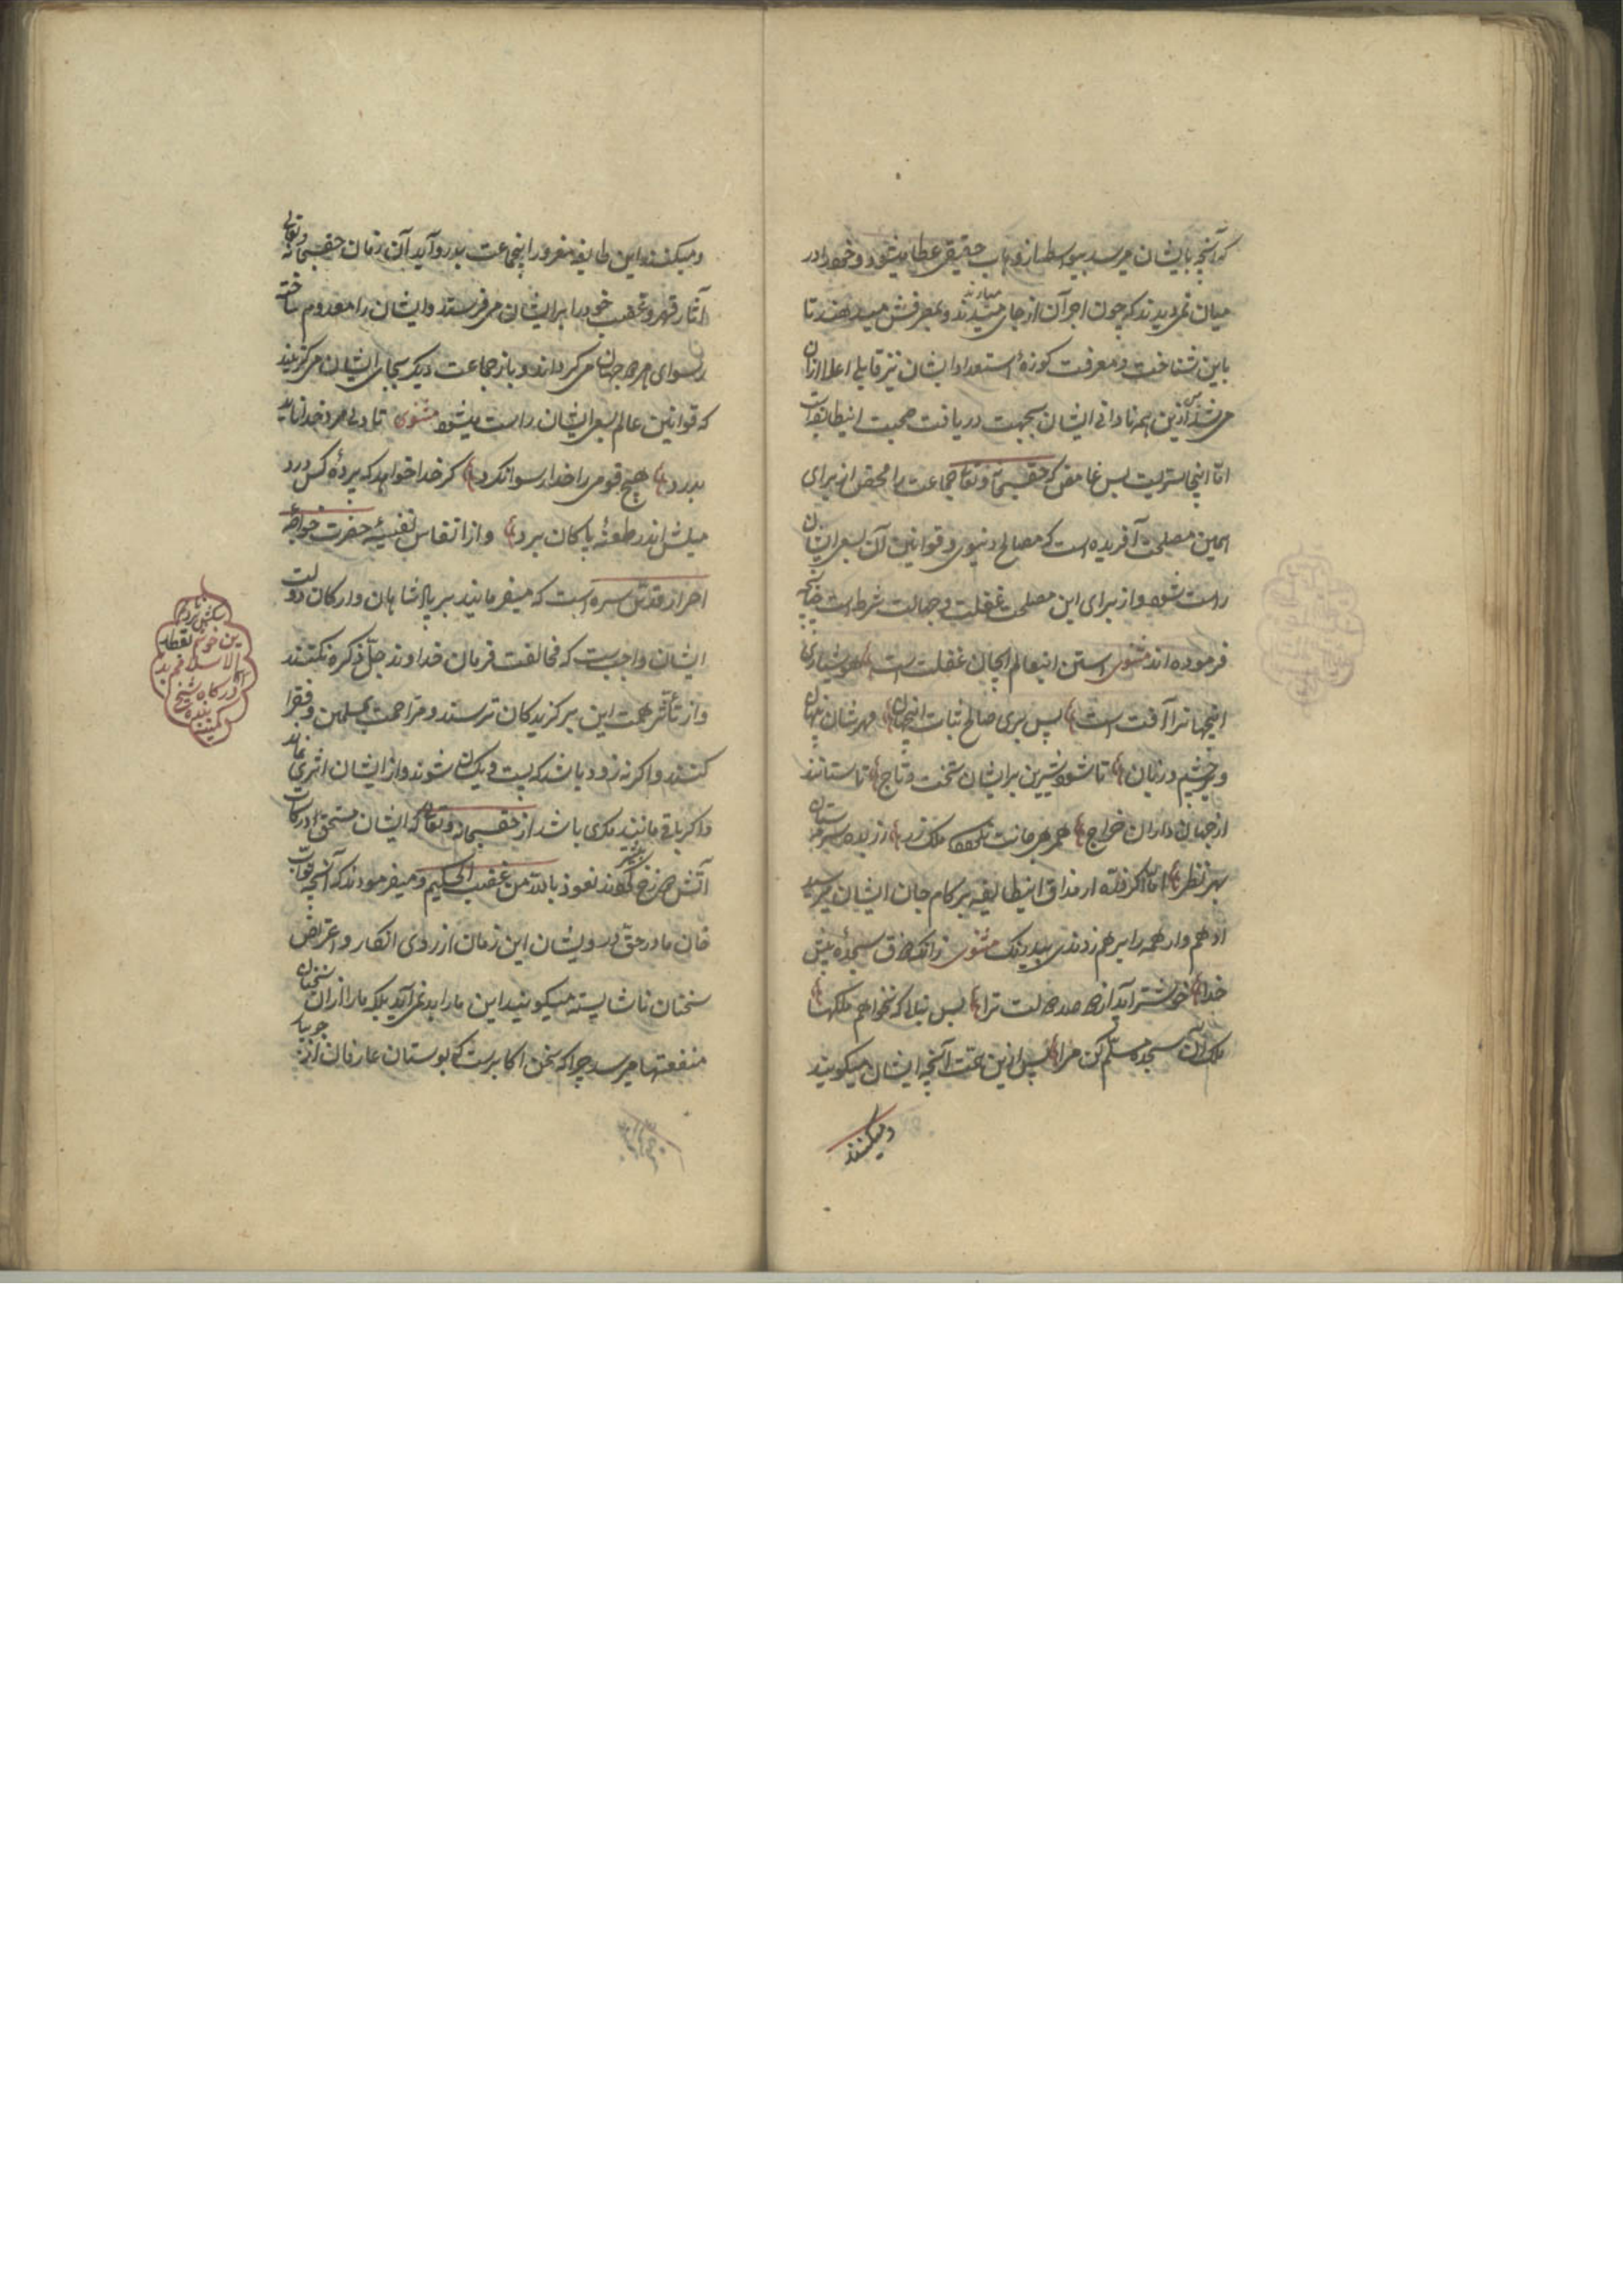 که آنچه بایشان میرسد بیواسطه از وهاب حقیقی عطا میشود و خود را در
میان نمی دیدند که چون اجر آن از جای میدیدند و بمصرفش میدهند تا
باین شناخت و معرفت کوزهٔ استعداد ایشان نیز قابل اعلا ازان
می شد ازین همه نادانی ایشان بجهت دریافت صحبت اینطایفه است
امّا اینجا سریست بس غامض که حقسبحانه و تعالی جماعت را محض از برای
همین مصلحت آفریده است که مصالح دنیوی و قوانین آن بسعی ایشان
راست شود و از برای این مصلحت غفلت و جهالت شرط است چنانچه
فرموده اند مثنوی استن اینعالم ایجان غفلت است هوشیاری
اینجهانرا آفت است پس برای صالح ثبات اینجهان مهرشان بنهاد
بر چشم و زبان تا شود شیرین برایشان تخت و تاج تا ستانند
از جهان داران خراج
بهر نظر اما اگر ذرّه از مذاق اینطایفه بر کام جان ایشان میرسید
ادهم وار همه را بر هم زدندی بیدرنک مثنوی زانکه ذوق سجدهٔ پیش
خدا خوشتر آید از دو صد دولت ترا پس بنالی که نخواهم ملکها
ملک آن سجده مسلّم کن مرا پس ازین جهت آنچه ایشان میکویند
و میکنند
و میکنند این طایفه مغرور اینجماعت بدرد آید آن زمان حقسبحانه و تعالی
آثار قهر و غضب خود را برایشان می فرستد و ایشان را معدوم ساخته
رسوای هر دو جهان می کرداند و باز جماعت دیکر بجای ایشان می کزیند
که قوانین عالم بسعی ایشان راست میشود مثنوی تا دل مرد خدا نامد
بدرد هیچ قومی را خدا رسوا نکرد کر خدا خواهد که پردهٔ کس درد
میلش اندر طعنهٔ پاکان برد و از انفاس نفیسهٔ حضرت خواجهٔ
احرار قدس سره است که میفرمایند بر پادشاهان و ارکان دولت
ایشان واجبست که مخالفت فرمان خداوند جلّ ذکره نکنند
و از تأثر همت این برکزیدکان ترسند و مزاحمت بمسلمین و فقرا
کنند و اکرنه زود باشد که پست و یکسان شوند و از ایشان اثری نماند
و اکر باقی مانند مکری باشد از حقسبحانه و تعالی که ایشان مستحق درکات
آتش دوزخ کردند نعوذ بالله من غضب الحکیم و میفرمودند که آنچه نوّاب
خان ما در حق درویشان این زمان از روی انکار و اعتراض
سخنان ناشایسته میکویند این ما را بد نمی آید بلکه ما را ازان سخنان
منفعتها میرسد چرا که سخن اکابرست که بوستان عارفان از